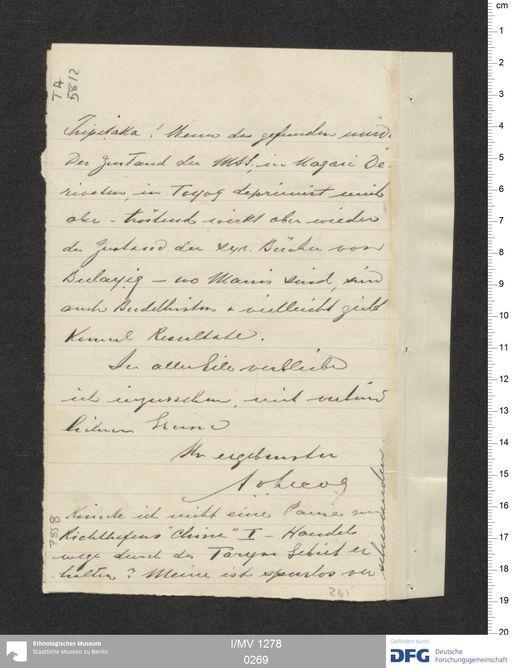 TA
5812
Tripitaka! Wenn das gefunden würde
Der Zustand der MSS. in Nagari De-
rivaten, in Toyoq deprimirt mich
aber - tröstend wirkt aber wieder
der Zustand der syr. Bücher von
Bulayiq - wo Manis sind, sind
auch Buddhisten & vielleicht giebt
Kumul Resultate.
In aller Eile verbleibe
ich inzwischen, mit verbind
lichem Gruss
Ihr ergebenster
AvLecoq
Könnte ich nicht eine Pause von
Richthofens "China" I - Handels
wege durch das Tarym Gebiet er
halten? Meine ist spurlos ver
schwunden.
7858
261
cm
1
2
3
4
5
6
7
8
9
10
11
12
13
14
15
16
17
18
19
20
Ethnologisches Museum
Staatliche Museen zu Berlin
I/MV 1278
0269
Gefördert durch
DFG Deutsche
Forschungsgemeinschaft